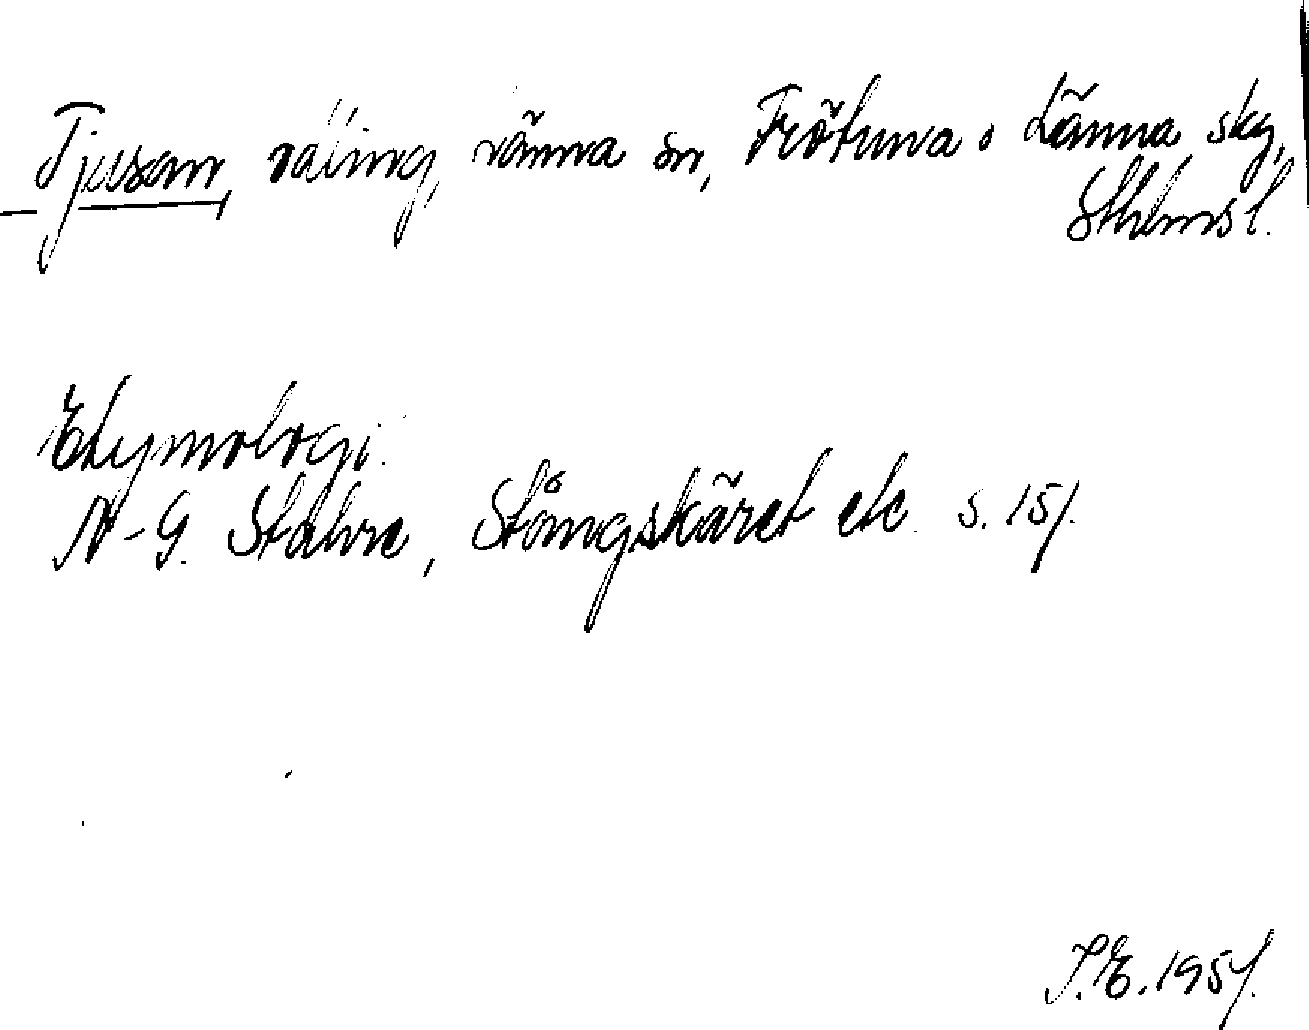 Tjusan, näing, nämna ön, Frötuna o Länna sky,
Sthlms l.
Etymologi.
N-G. Stahre, Stångskäret etc. s. 151.
S.E. 1951.